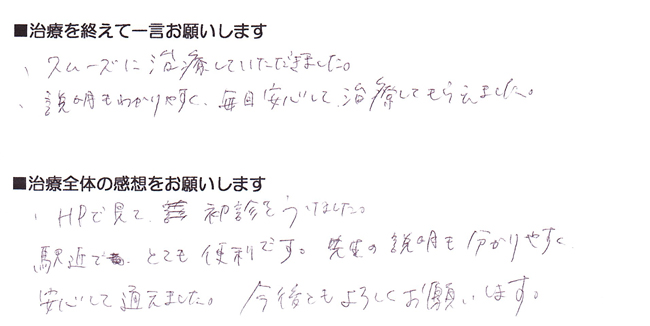 ■治療を終えて一言お願いします
、スムーズに治療していただきました。
、説明もわかりやすく、毎回安心して治療してもらえました。
■治療全体の感想をお願いします
、HPで見て、初診をうけました。
駅近で、とても便利です。先生の説明も分かりやすく
安心して通えました。今後ともよろしくお願いします。